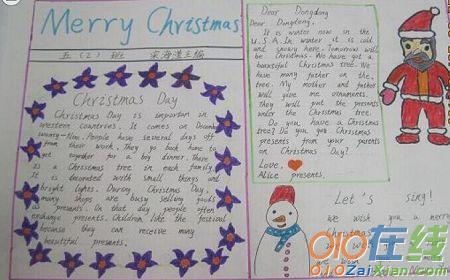 Merry Christmas
五（2）班
主编
Christmas Day
Christmas Day is importan in
western countries. It comes on
People have several days off
from their work. They go back home to
get together for a big dinner. There
is a Christmas tree in each family.
It is decorated with small things and
bright lights. During Christmas Day,
many shops are busy selling goods
as presents. On that day people often
exchange presents. Children like the festival
because they can receive many
beautiful presents.
Dear Dongdong
Dear. Dongdong.
It is winter now in the
U.S.A. In winter it is cold
and snowy here. Tomorrow will
be Christmas. We have got a
beautiful Christmas tree. We
have many father on the
tree. My mother and father
will give me ornaments.
they will put the presents
under the Christmas tree.
Do you have a Christmas
tree? Do you get Christmas
presents from your parents
on Christmas Day?
Love.
Alice presents.
Let's sing!
we wish you a merry
Christmas
we wish
we wish
010在线
010ZaiXian.com